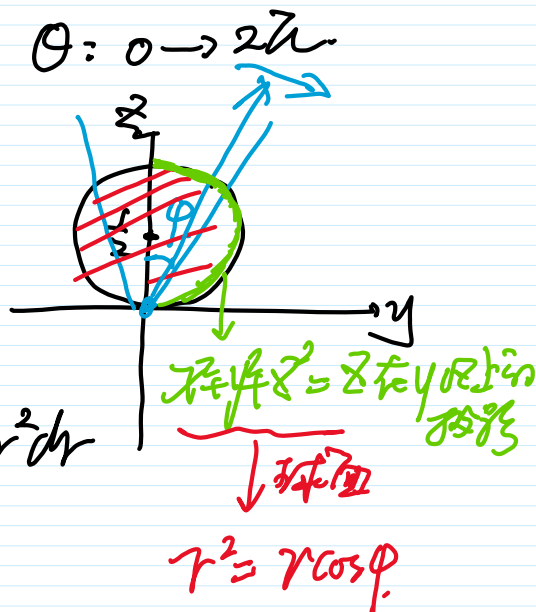 θ: 0 → 2π
z
φ
1/2
y
x²+y²+z²=z在y轴上的
投影
r²dr
球面
r²=rcosφ.